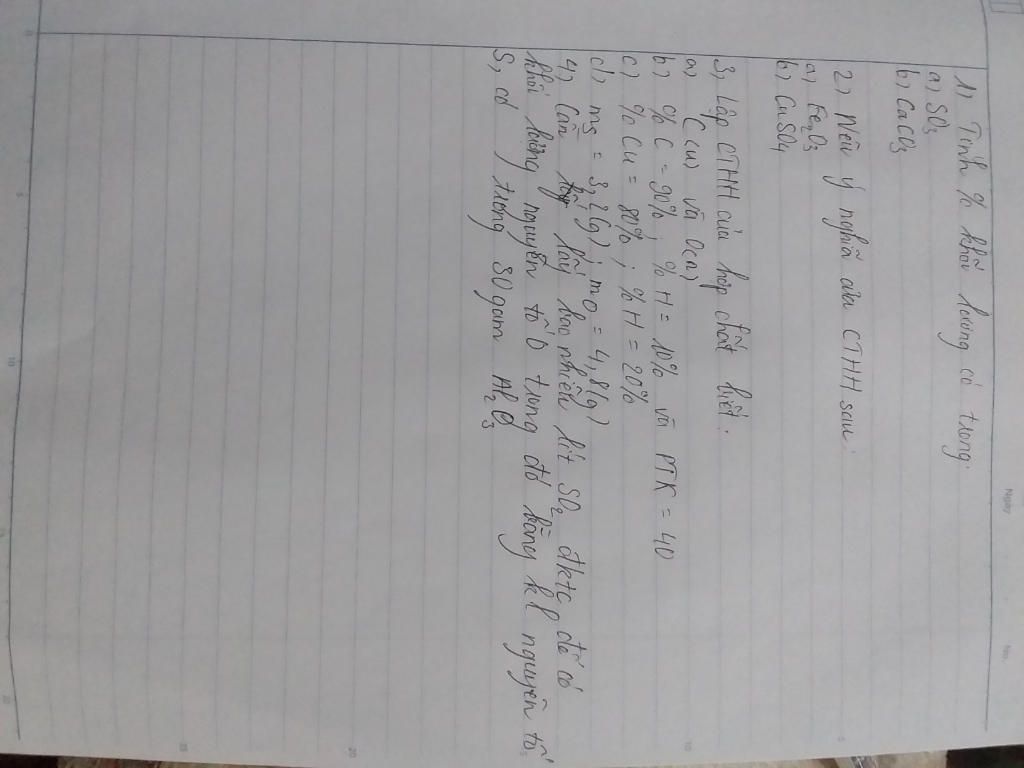 1) Tính % khối lượng có trong:
a) SO3
b) CaCO3
2) Nêu ý nghĩa của CTHH sau:
a) Fe2O3
b) CuSO4
3, Lập CTHH của hợp chất biết:
a) C (IV) và O(II)
b) % C = 90%; % H = 10% và PTK = 40
c) % Cu = 80%; % H = 20%
d) mS = 3,2(g); mO = 4,8(g)
4, Cần lấy bao nhiêu lít SO2 đktc để có
khối lượng nguyên tố O trong đó bằng kl nguyên tố
S, có trong 30gam Al2O3
Ngày
No.